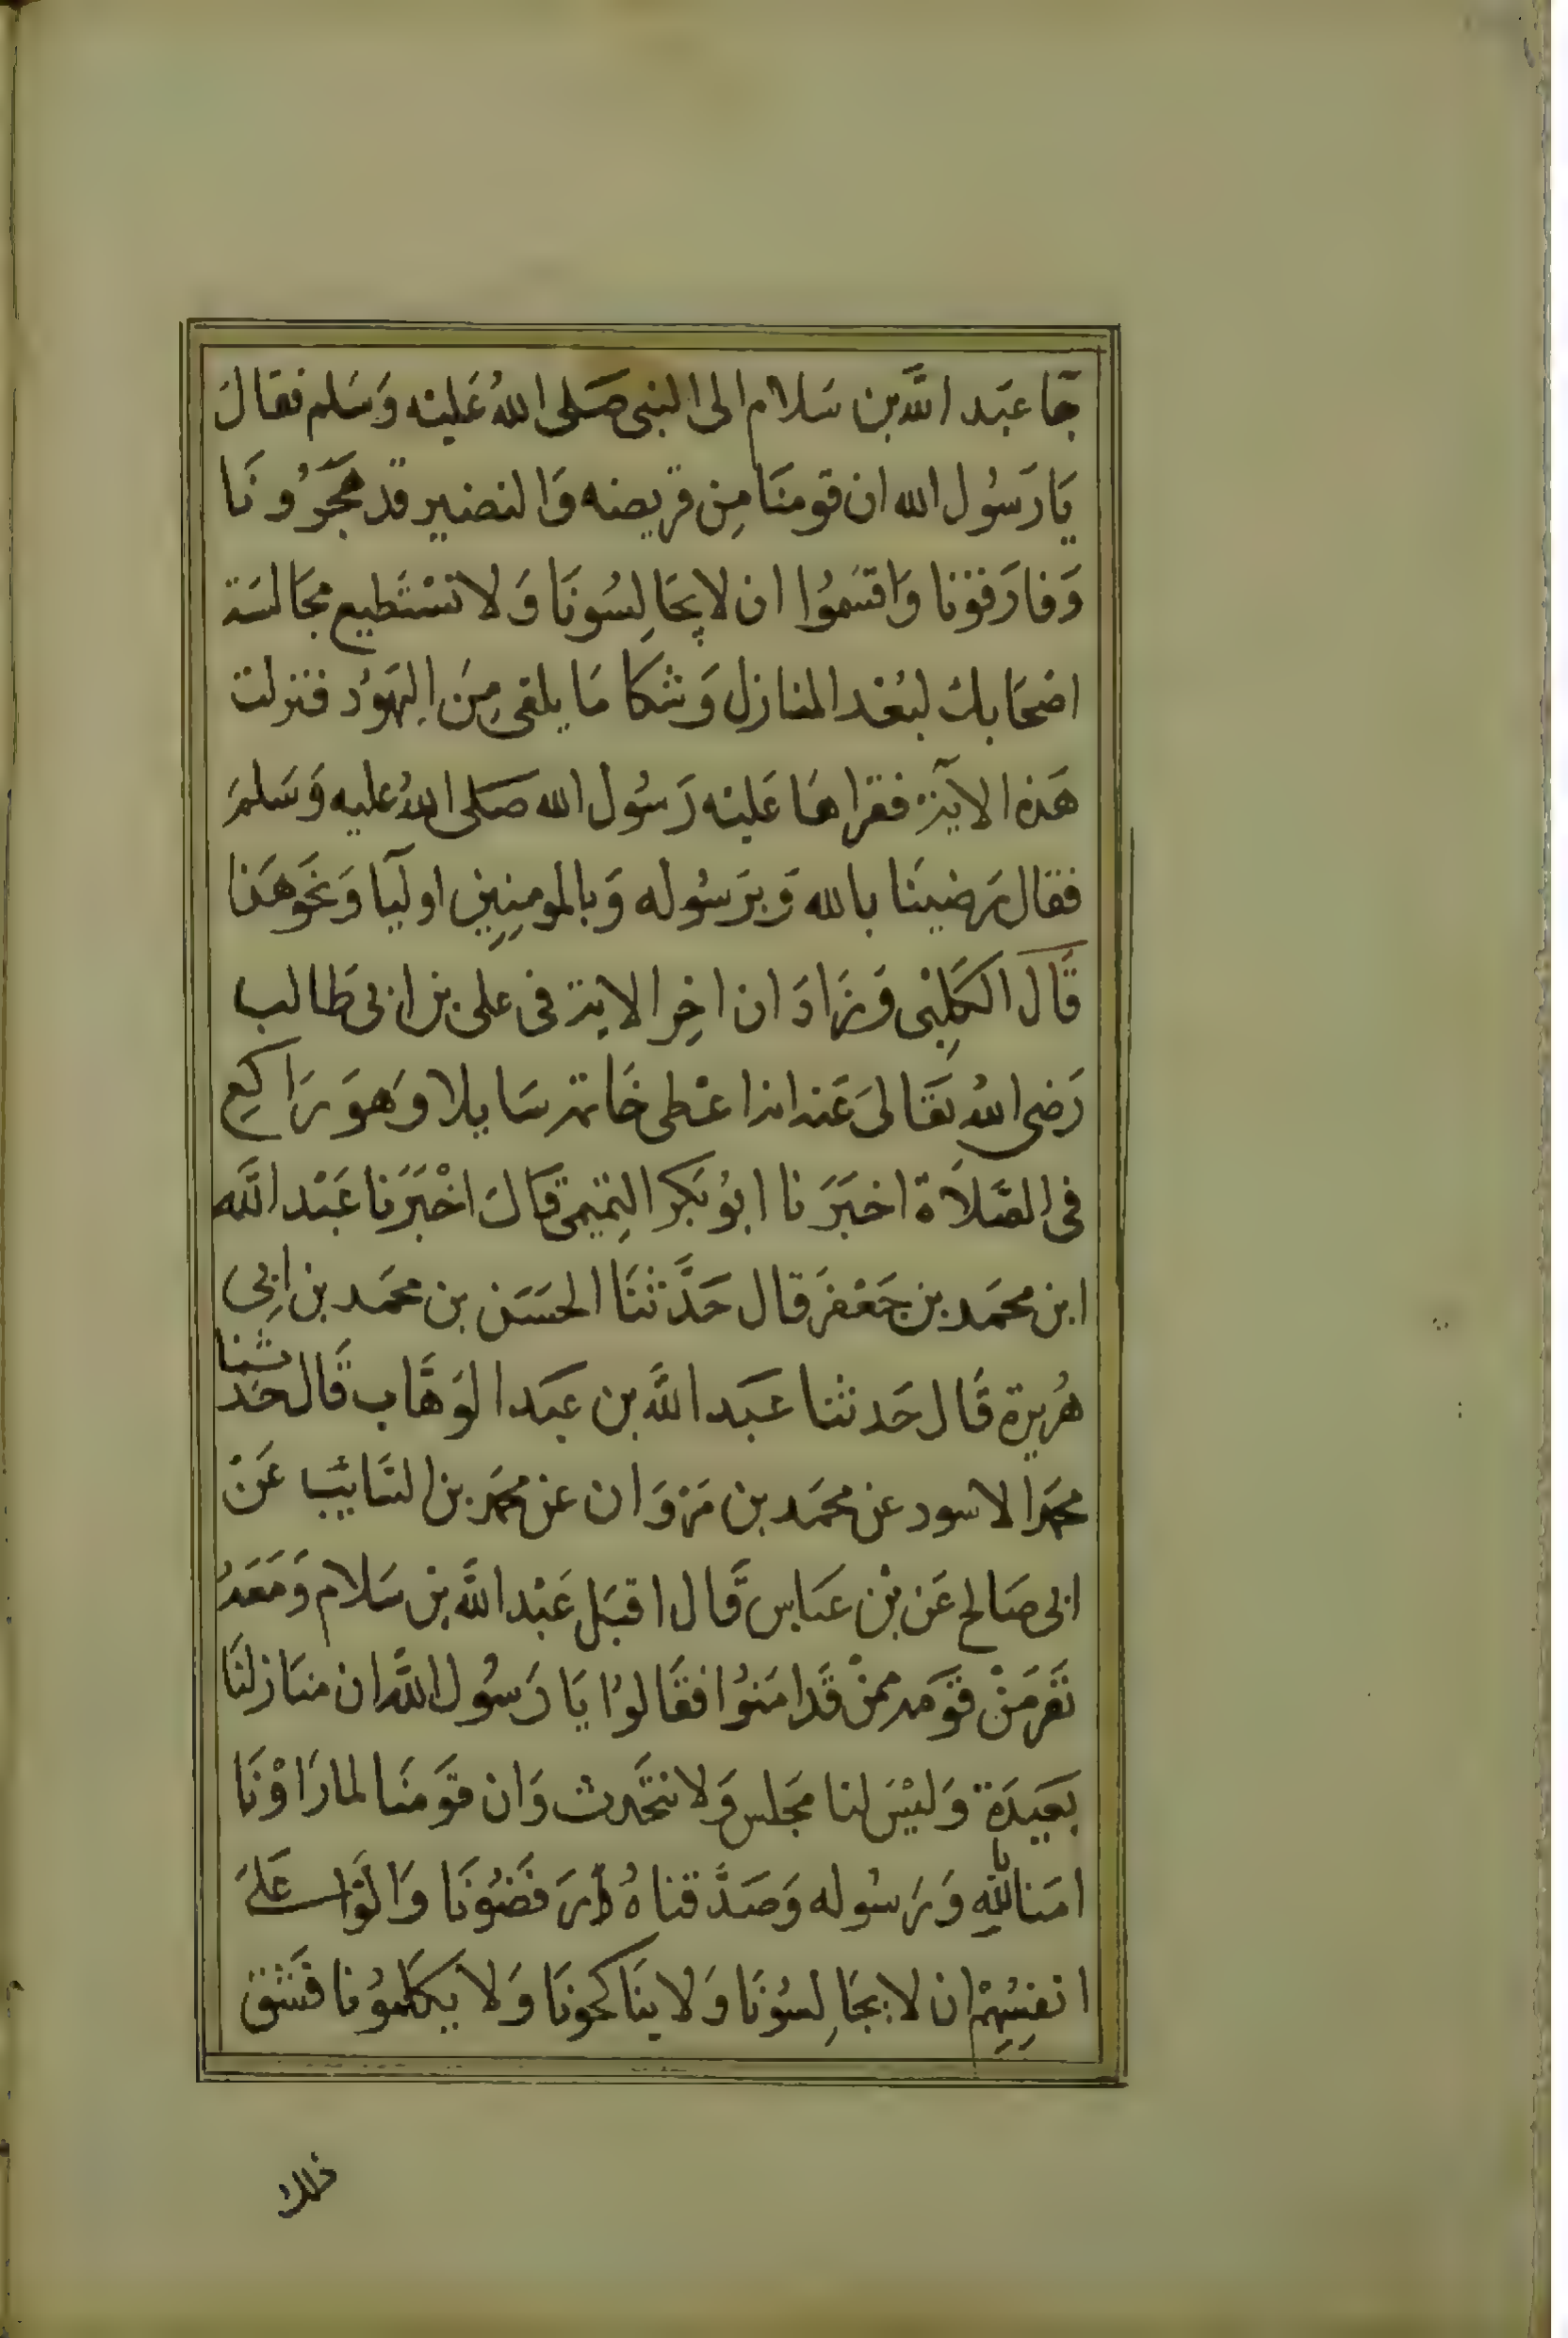 جآ عبَد اللَّه بن سَلام الى النبى صَلى اللهُ عَليْه وَسَلم فقالَ
يَا رَسُول الله ان قومنَا مِن قريضه وَالنضير قد هَجَرُونَا
وَفارَقونا وَاقسَموُا ان لا يجَالِسُونَا وَلا نسْتَطيع مجَالسَة
اصْحَابك لبُعْد المنازل وَشكا مَا يلقى مِنَ اليَهوُد فنزلت
هَذه الآية فقراهَا عَليْه رَسُول الله صَلى اللهُ عليه وَسَلمَ
فقال رَضينَا بالله وَبرَسُوله وَبالمومِنِين اوليآ وَنحَوهَذا
قَال الكَلِبْى وَزَادَ ان اخِر الاية فى على بن ابى طَالب
رَضى اللهُ تعَالىَ عَنه انه اعْطى خَاتمه سَايلا وَهوَ رَاكِع
فى الصَّلاَة اخبَرَنا ابوُ بَكر التِميمى قَالَ اخْبَرَنا عَبْد اللَّه
ابن محمَد بن جَعْفَر قال حَدَّثنَا الحسَن بن محمَد بن ابِى
هُريرة قَال حَدثنا عَبَد اللَّه بن عبَد الوَهَّاب قَال حَدثنا
محمَد الاسود عن محمَد بن مَروَان عن محمَد بن السَّايب عَنْ
ابى صَالح عَن بْن عبَاس قَال اقبَل عَبْد اللَّه بن سَلام وَمَعَهُ
نَفَر مَنْ قوَمه ممنْ قَد امَنوُا فقَالوُا يَا رَسُول اللَّه ان منَازلنَا
بَعيَدَة وَليْسَ لنا مَجلس وَلا نتحَدث وَان قوَمنَا لما رَاوْنَا
امَنا باللهِ وَرَسُوله وَصَدَّقناهُ رَفَضوُنَا وَالوَا علىَ
انفِسُهِمْ ان لا يجَالِسُوُنَا وَلا ينَاكحونَا وَلا يكَلموُنا فَشَق
ذلك